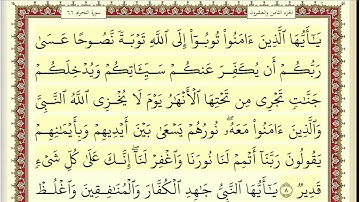 سورة التحريم ٦٦ الجزء الثامن والعشرون
يَٰٓأَيُّهَا ٱلَّذِينَ ءَامَنُوا۟ تُوبُوٓا۟ إِلَى ٱللَّهِ تَوْبَةً نَّصُوحًا عَسَىٰ
رَبُّكُمْ أَن يُكَفِّرَ عَنكُمْ سَيِّـَٔاتِكُمْ وَيُدْخِلَكُمْ
جَنَّٰتٍ تَجْرِى مِن تَحْتِهَا ٱلْأَنْهَٰرُ يَوْمَ لَا يُخْزِى ٱللَّهُ ٱلنَّبِىَّ
وَٱلَّذِينَ ءَامَنُوا۟ مَعَهُۥ نُورُهُمْ يَسْعَىٰ بَيْنَ أَيْدِيهِمْ وَبِأَيْمَٰنِهِمْ
يَقُولُونَ رَبَّنَآ أَتْمِمْ لَنَا نُورَنَا وَٱغْفِرْ لَنَآ إِنَّكَ عَلَىٰ كُلِّ شَىْءٍ
قَدِيرٌ ٨ يَٰٓأَيُّهَا ٱلنَّبِىُّ جَٰهِدِ ٱلْكُفَّارَ وَٱلْمُنَٰفِقِينَ وَٱغْلُظْ